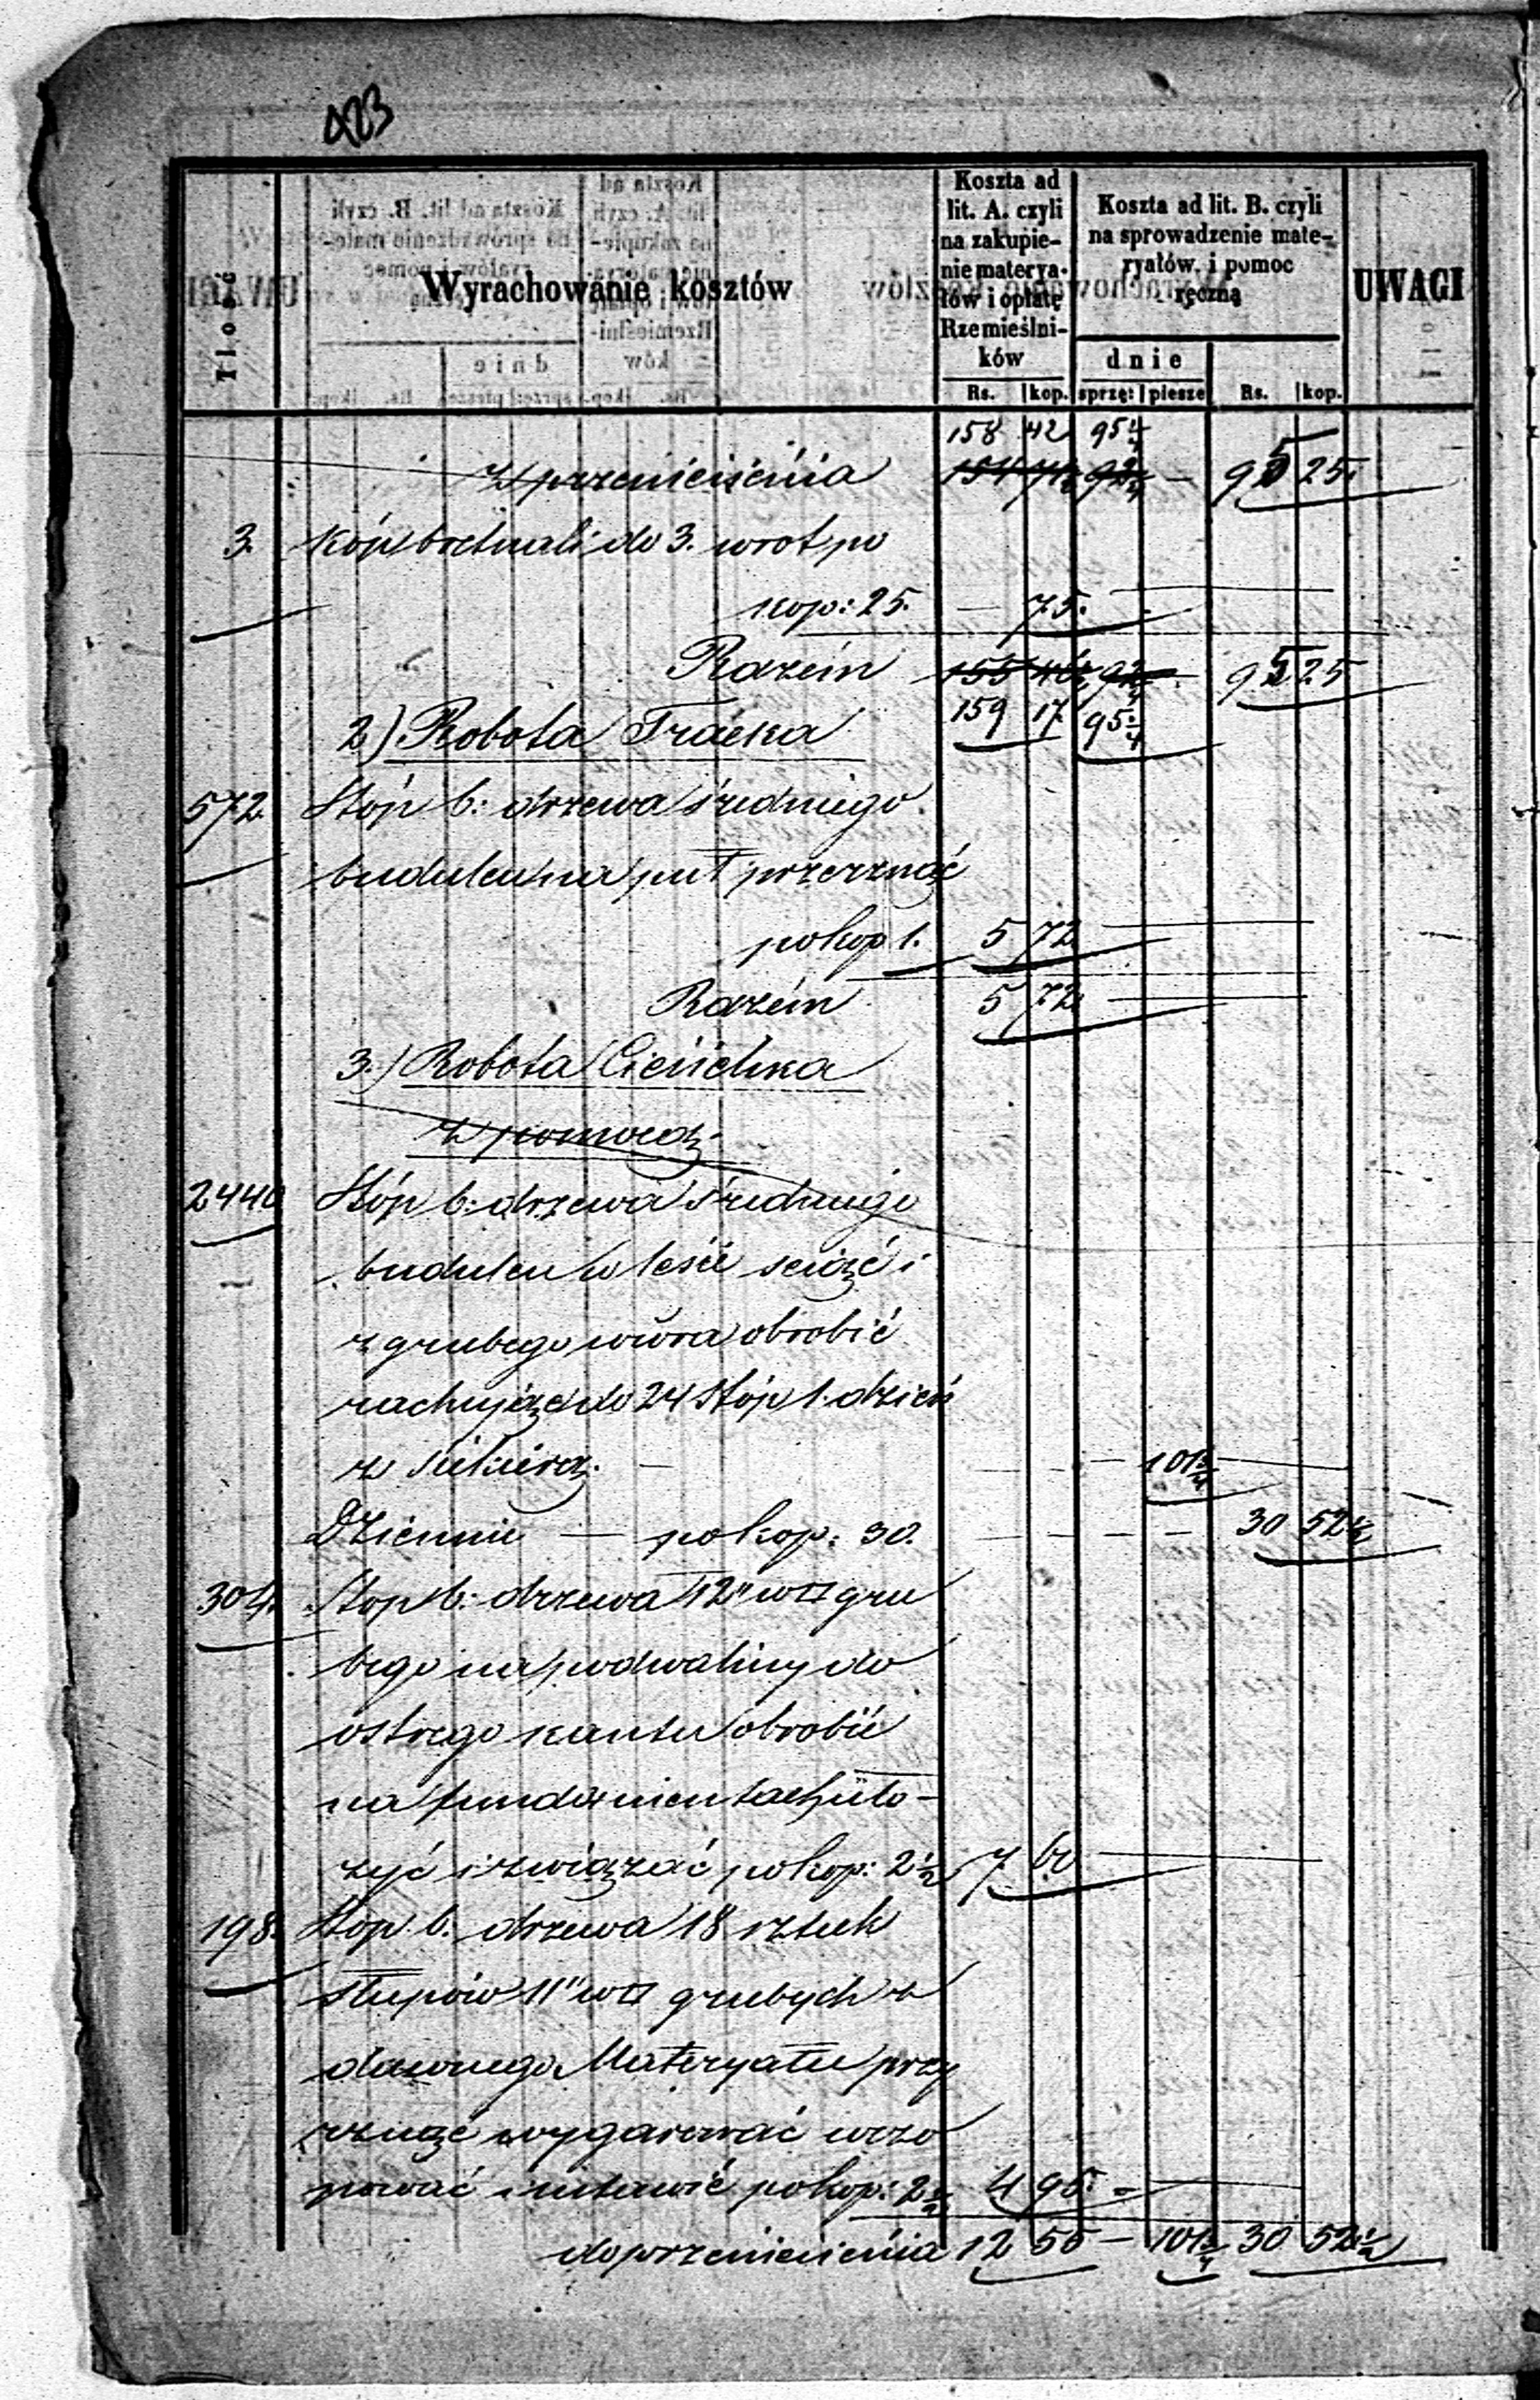 423
Ilość
Wyrachowanie kosztów
Koszta ad
lit. A. czyli
na zakupie-
nie materya-
łów i opłatę
Rzemieślni-
ków
Rs. kop.
Koszta ad lit. B. czyli
na sprowadzenie mate-
ryałów. i pomoc
ręczną
dnie
sprzę: piesze
Rs. kop.
UWAGI
158 42 95 1/4
z przeniesienia 92 1/4 — 95 25.
3. Kóp bretnali do 3. wrot po
kop: 25. — 75.
Razem 155 92 1/4 — 95 25
159 17. 95 1/4
2) Robota Tracka
572. Stóp b: drzewa średniego
budulcu na puł przerznąć
po kop 1. 5 72
Razem 5 72
3.) Robota Ciesielska
z pomocą.
2440 Stóp b: drzewa średniego
budulcu w lesie sciąć i
z grubego wióra obrobić
rachując do 24 stóp 1. dzień
z siekierą. — 101 3/4
Dziennie — po kop: 30. 30 52 1/2
304. Stop b: drzewa 12" w □ gru
bego na podwaliny do
ostrego kantu obrobić
na fundamentach uło-
żyć i związać po kop: 2 1/2 7 60
198. Stop. b. drzewa 18 sztuk
słupów 11" w □ grubych z
dawnego Materyału przy
rznąć wygarować wczo
pować i ustawić po kop: 2 1/2 4 95. -
do przeniesienia 12 55 — 101 3/4 30 52 1/2